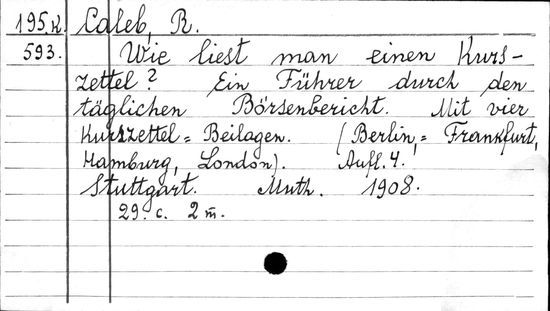 195 K. Caleb, R.
593. Wie liest man einen Kurs-
zettel? Ein Führer durch den
täglichen Börsenbericht. Mit vier
Kurszettel = Beilagen. (Berlin, = Frankfurt,
Hamburg, London). Aufl. 4.
Stuttgart. Muth. 1908.
29. c. 2 m.